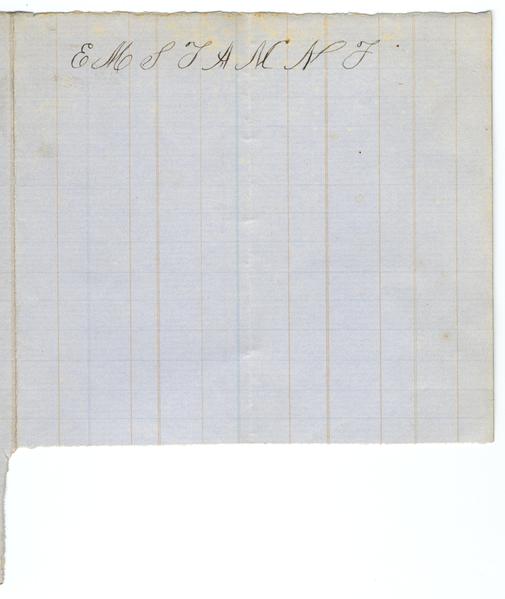 E M S T A M N T